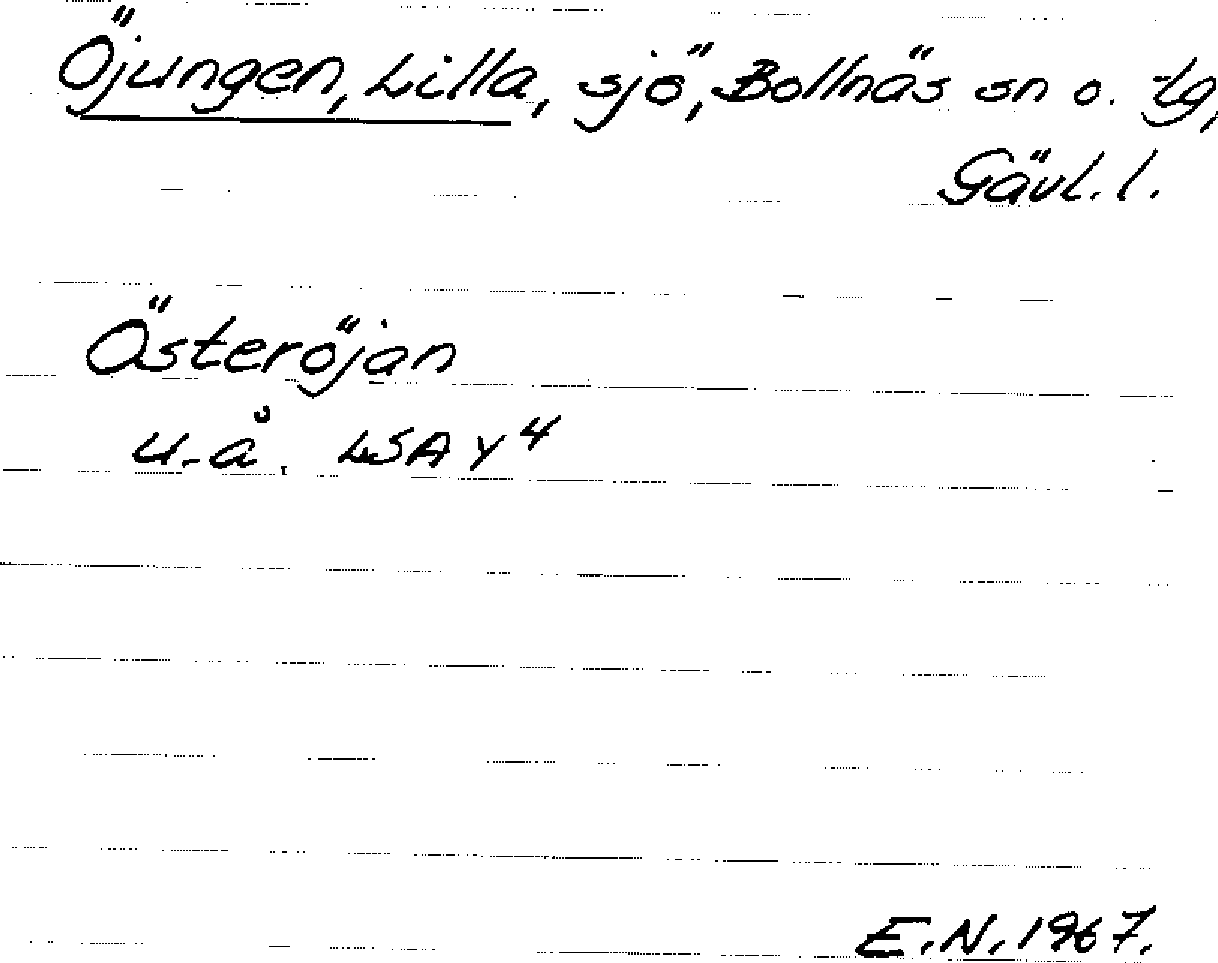 Öjungen, Lilla, sjö, Bollnäs sn o. tg,
Gävl. l.
Österöjan
u.å. LSA Y 4
E.N. 1967.